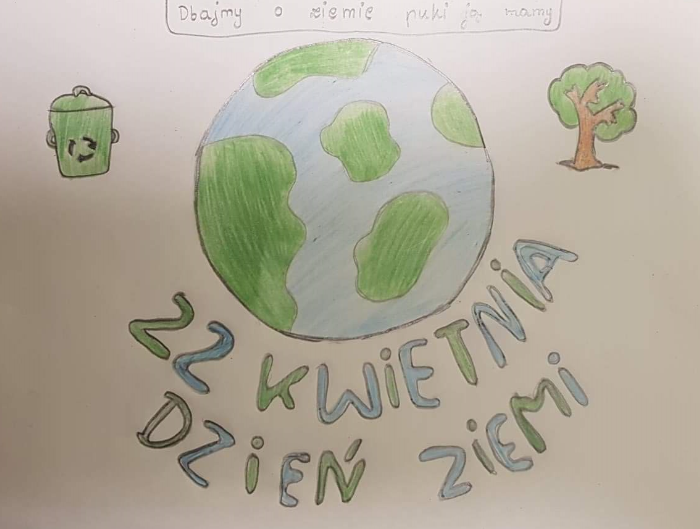 Dbajmy o ziemie puki ją mamy
22 KWiETNiA
DZiEŃ ZiEMi